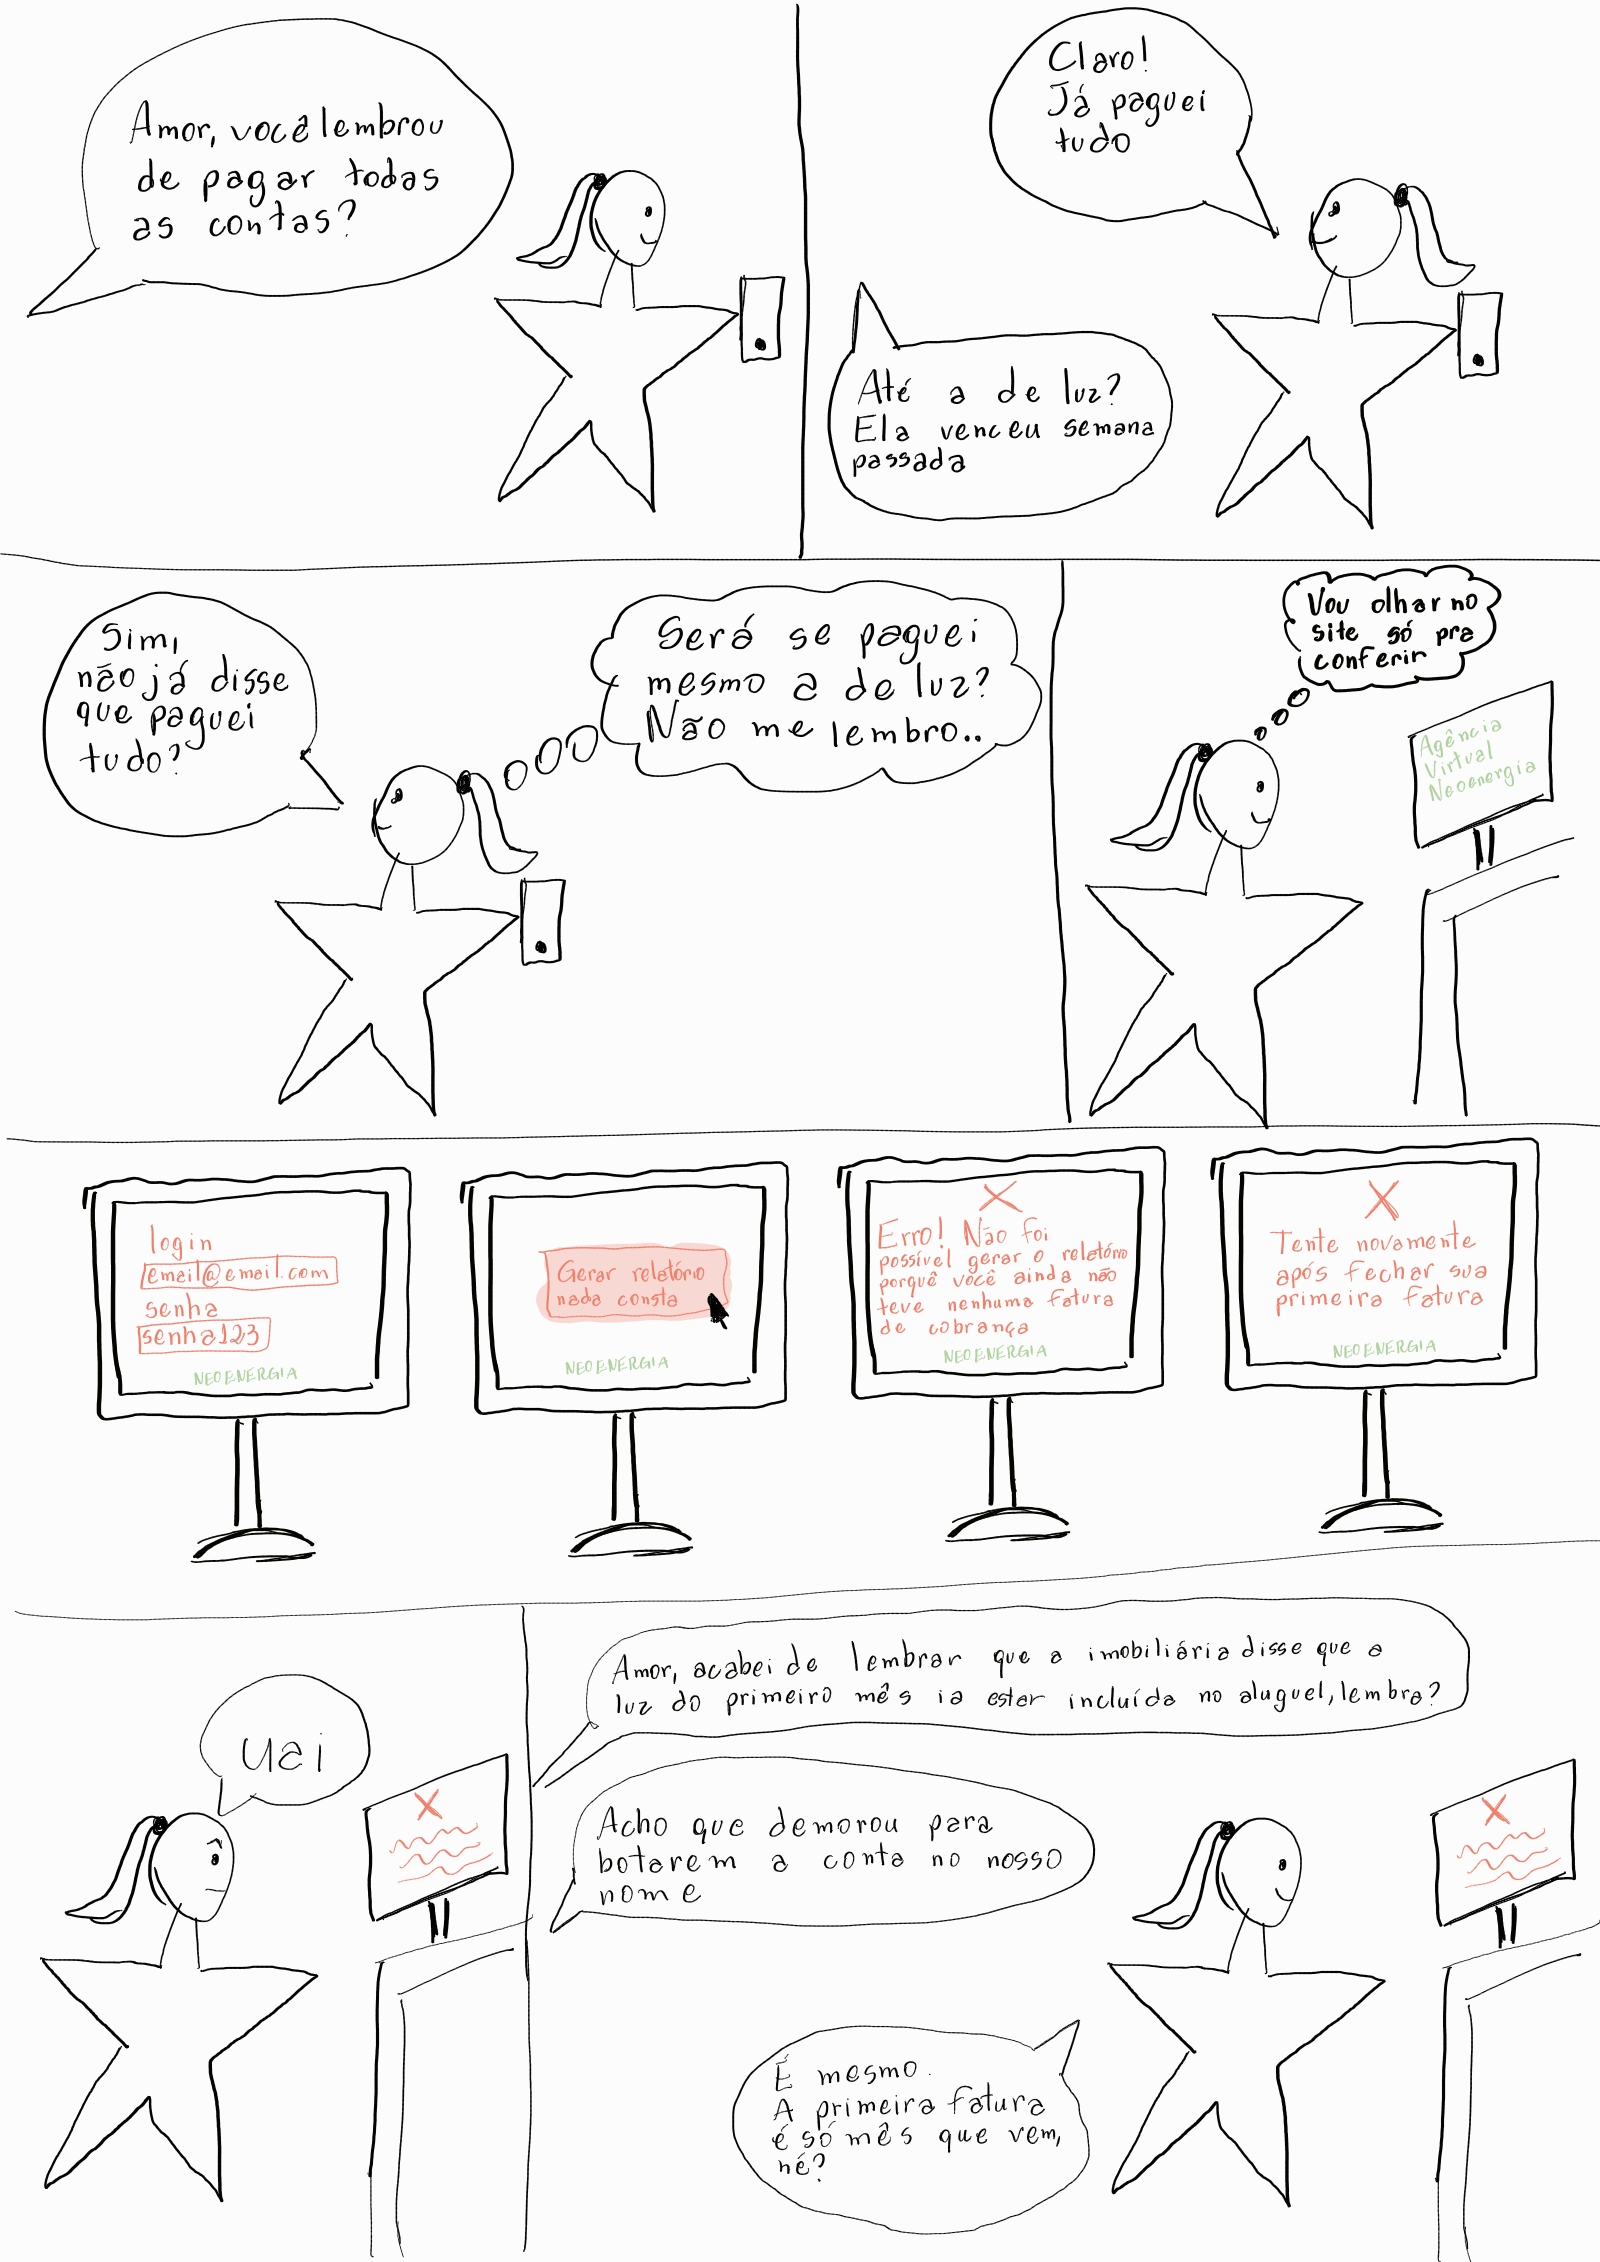 Amor, você lembrou
de pagar todas
as contas?
Claro!
Já paguei
tudo
Até a de luz?
Ela venceu semana
passada
Sim,
não já disse
que paguei
tudo?
Será se paguei
mesmo a de luz?
Não me lembro..
Vou olhar no
site só pra
conferir
Agência
Virtual
Neoenergia
login
email@email.com
senha
senha123
NEOENERGIA
Gerar relatório
nada consta
NEOENERGIA
Erro! Não foi
possível gerar o relatório
porquê você ainda não
teve nenhuma fatura
de cobrança
NEOENERGIA
Tente novamente
após fechar sua
primeira fatura
NEOENERGIA
uai
Amor, acabei de lembrar que a imobiliária disse que a
luz do primeiro mês ia estar incluída no aluguel, lembra?
Acho que demorou para
botarem a conta no nosso
nome
É mesmo.
A primeira fatura
é só mês que vem,
né?